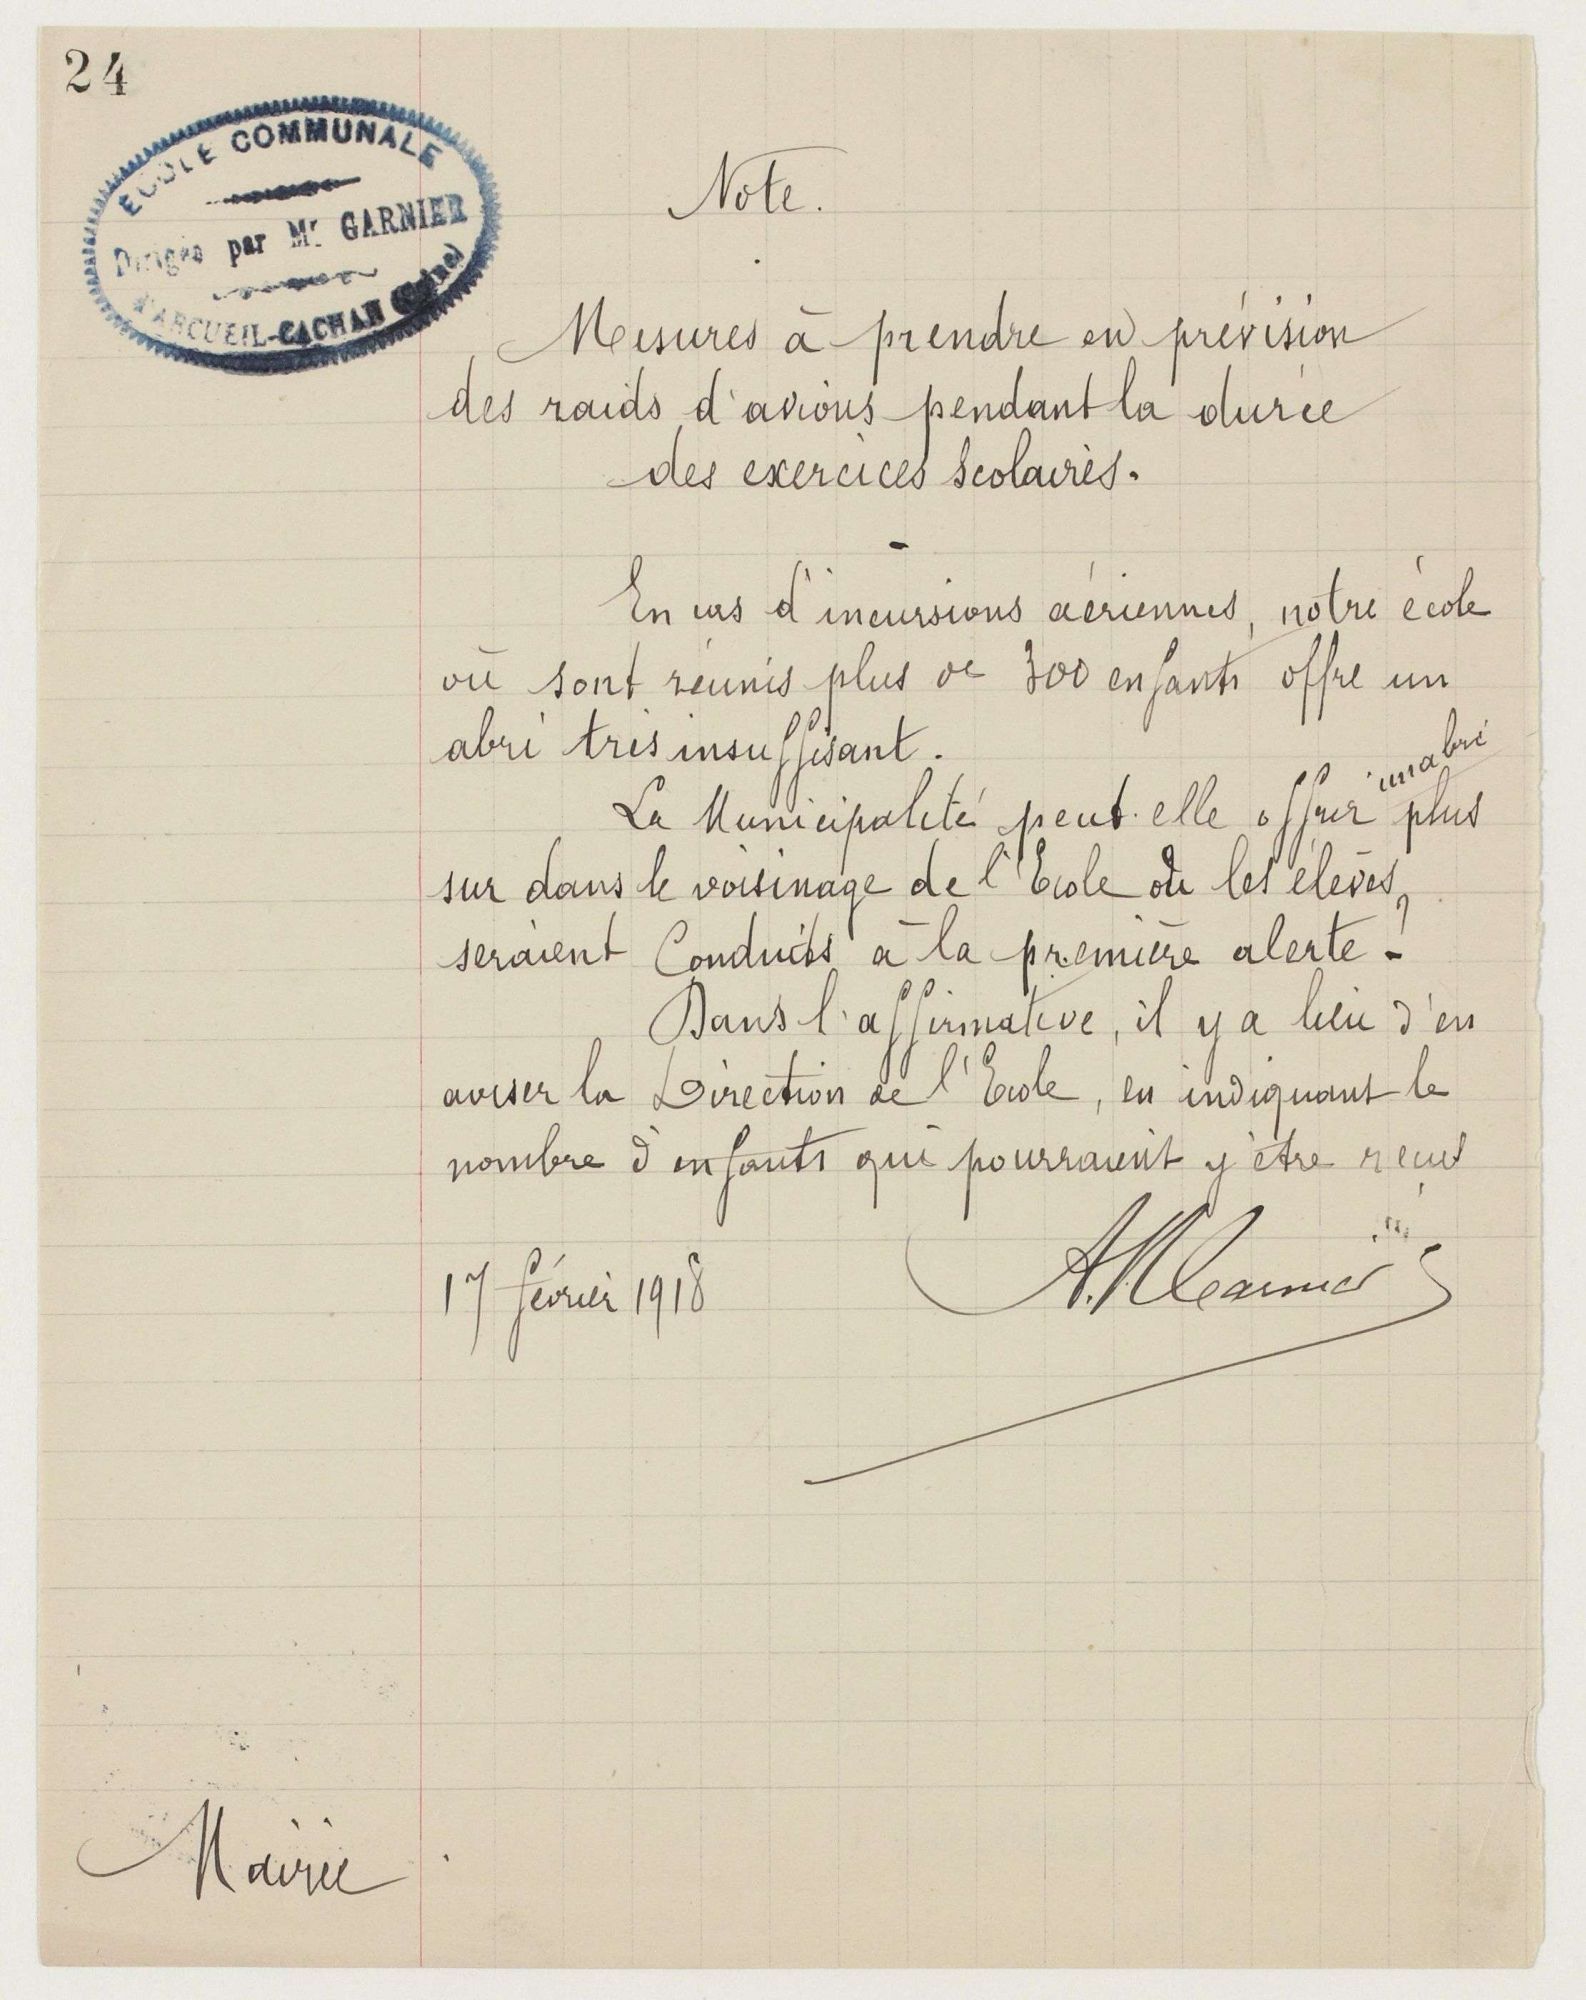 24
ECOLE COMMUNALE
Dirigée par Mr GARNIER
d'ARCUEIL-CACHAN (Seine)
Note.
Mesures à prendre en prévision
des raids d'avions pendant la durée
des exercices scolaires.
En cas d'incursions aériennes, notre école
où sont réunis plus de 300 enfants offre un
abri très insuffisant.
un abri
La Municipalité peut-elle offrir plus
sur dans le voisinage de l'Ecole où les élèves
seraient conduits à la première alerte ?
Dans l'affirmative, il y a lieu d'en
aviser la Direction de l'Ecole, en indiquant le
nombre d'enfants qui pourraient y être reçus
17 février 1918
Garnier
Mairie